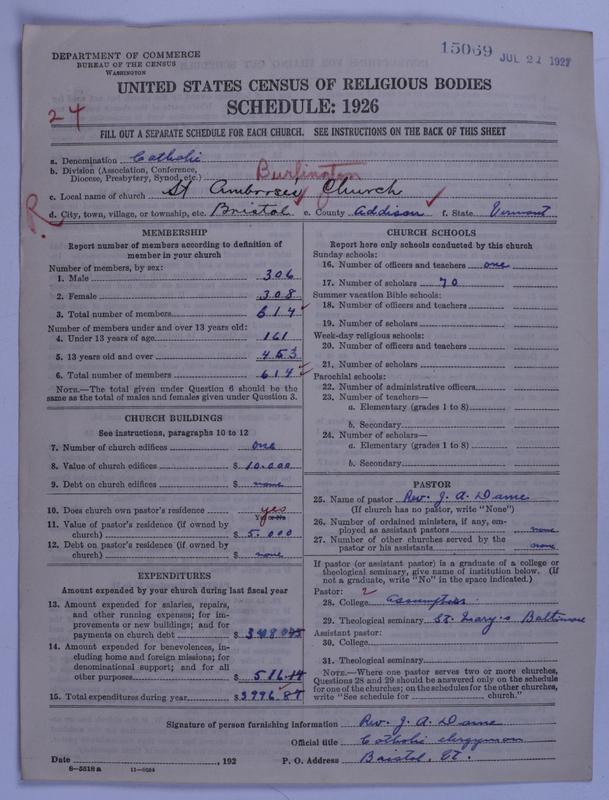 15069 JUL 21 1927
DEPARTMENT OF COMMERCE
BUREAU OF THE CENSUS
WASHINGTON
UNITED STATES CENSUS OF RELIGIOUS BODIES
SCHEDULE: 1926
24
FILL OUT A SEPARATE SCHEDULE FOR EACH CHURCH. SEE INSTRUCTIONS ON THE BACK OF THIS SHEET
a. Denomination Catholic
b. Division (Association, Conference, Diocese, Presbytery, Synod, etc.) Burlington
c. Local name of church St Ambrose's Church
R. d. City, town, village, or township, etc. Bristol e. County Addison f. State Vermont
MEMBERSHIP
Report number of members according to definition of
member in your church
Number of members, by sex:
1. Male 306
2. Female 308
3. Total number of members 614
Number of members under and over 13 years old:
4. Under 13 years of age 161
5. 13 years old and over 453
6. Total number of members 614
NOTE.—The total given under Question 6 should be the
same as the total of males and females given under Question 3.
CHURCH BUILDINGS
See instructions, paragraphs 10 to 12
7. Number of church edifices one
8. Value of church edifices $ 10.000
9. Debt on church edifices $ none
10. Does church own pastor's residence yes
11. Value of pastor's residence (if owned by
church) $ 5.000
12. Debt on pastor's residence (if owned by
church) $ none
EXPENDITURES
Amount expended by your church during last fiscal year
13. Amount expended for salaries, repairs,
and other running expenses; for im-
provements or new buildings; and for
payments on church debt $
14. Amount expended for benevolences, in-
cluding home and foreign missions; for
denominational support; and for all
other purposes $ 516.44
15. Total expenditures during year $
CHURCH SCHOOLS
Report here only schools conducted by this church
Sunday schools:
16. Number of officers and teachers one
17. Number of scholars 70
Summer vacation Bible schools:
18. Number of officers and teachers
19. Number of scholars
Week-day religious schools:
20. Number of officers and teachers
21. Number of scholars
Parochial schools:
22. Number of administrative officers
23. Number of teachers—
a. Elementary (grades 1 to 8)
b. Secondary
24. Number of scholars—
a. Elementary (grades 1 to 8)
b. Secondary
PASTOR
25. Name of pastor Rev. J. A. Dame
(If church has no pastor, write "None")
26. Number of ordained ministers, if any, em-
ployed as assistant pastors none
27. Number of other churches served by the
pastor or his assistants none
If pastor (or assistant pastor) is a graduate of a college or
theological seminary, give name of institution below. (If
not a graduate, write "No" in the space indicated.)
Pastor: 2
28. College Assumption
29. Theological seminary St. Mary's Baltimore
Assistant pastor:
30. College
31. Theological seminary
NOTE.—Where one pastor serves two or more churches,
Questions 28 and 29 should be answered only on the schedule
for one of the churches; on the schedules for the other churches,
write "See schedule for church."
Signature of person furnishing information Rev. J. A. Dame
Official title Catholic clergyman
Date , 192 P. O. Address Bristol, Vt.
8—5518a 11—9064